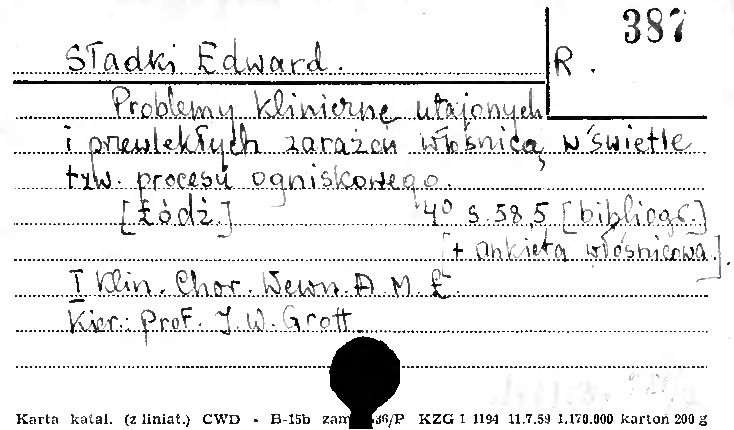 387
Sładki Edward.
R.
Problemy kliniczne utajonych
i przewlekłych zarażeń włośnicą w świetle
tzw. procesu ogniskowego.
[Łódź.] 4° s. 58,5 [bibliogr.]
[+ ankieta włośnicowa.].
I Klin. Chor. Wewn. A. M. Ł.
Kier.: Prof. J. W. Grott.
Karta katal. (z liniat.) CWD - B-15b 36/P KZG 1 1194 11.7.59 1.170.000 karton 200 g